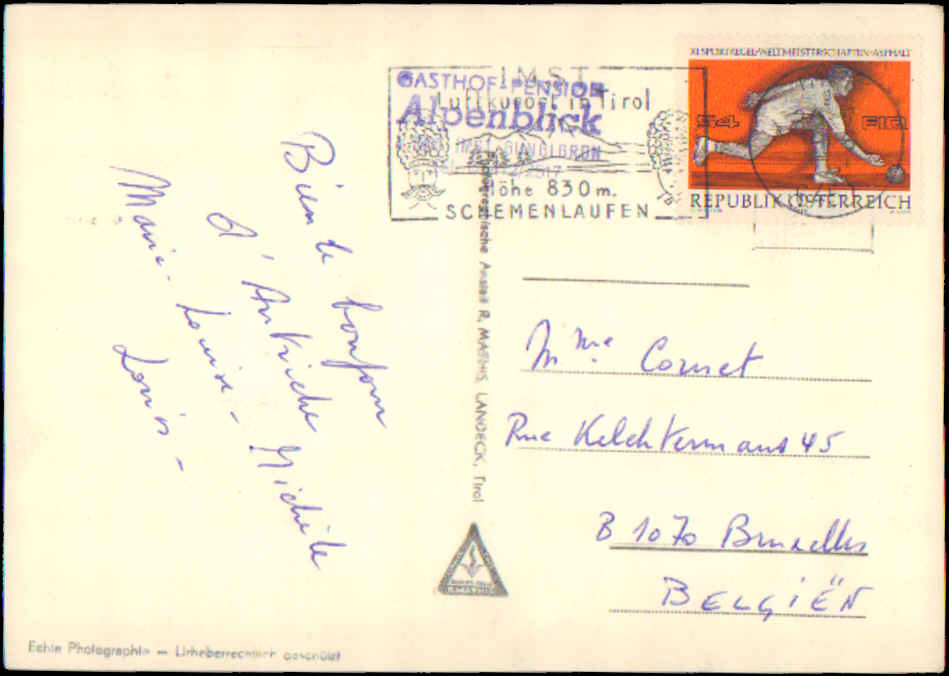 XI. SPORTKEGEL-WELTMEISTERSCHAFTEN-ASPHALT
S4 FIQ
REPUBLIK ÖSTERREICH
IMST
Luftkurort in Tirol
Höhe 830 m.
SCHEMENLAUFEN
GASTHOF-PENSION
Alpenblick
Bien le bonjour
d'Autriche Michèle
Marie-Louise -
Louis -
Mme Cornet
Rue Kelchtermans 45
B 1070 Bruxelles
BELGIËN
Anstalt R. MATHIS, LANDECK, Tirol
Echte Photographie — Urheberrechtlich geschützt